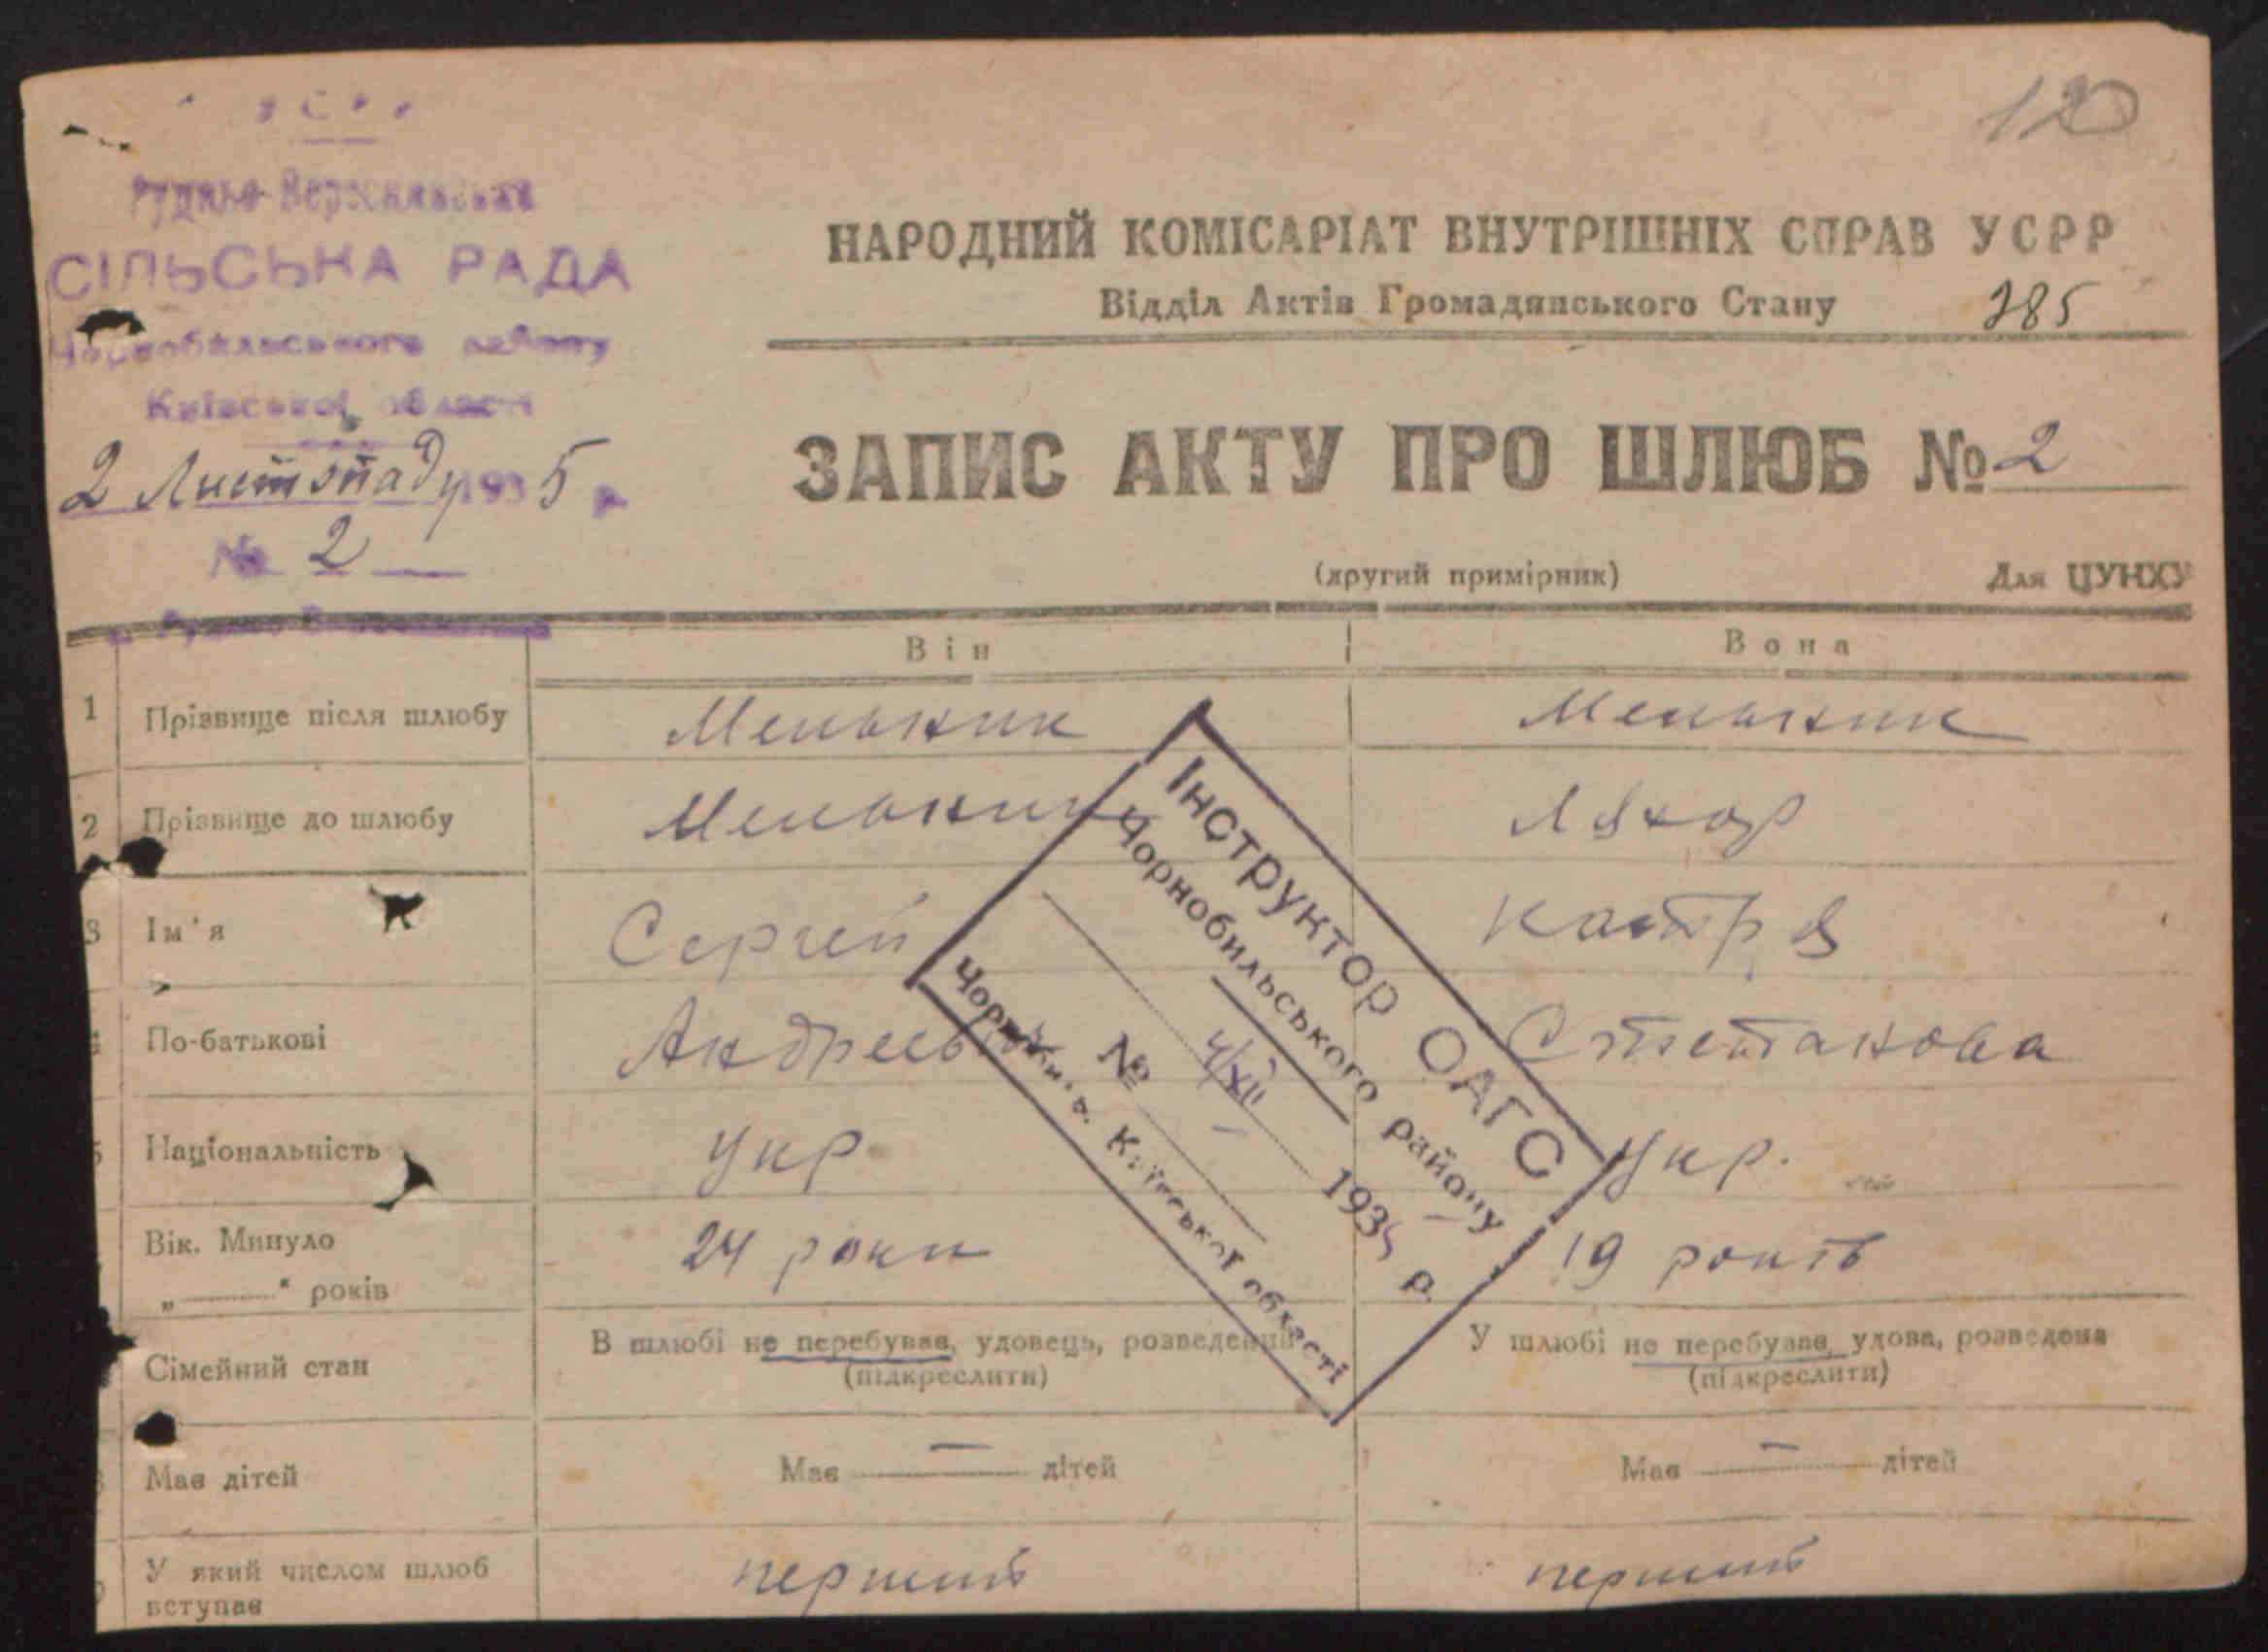 120
СІЛЬСЬКА РАДА
Чорнобильського району
Київської області
2 Листопаду 1935 р.
№ 2
НАРОДНИЙ КОМІСАРІАТ ВНУТРІШНІХ СПРАВ УСРР
Відділ Актів Громадянського Стану 285
ЗАПИС АКТУ ПРО ШЛЮБ № 2
(другий примірник) Для ЦУНХУ
Він Вона
1 Прізвище після шлюбу Мельник Мельник
2 Прізвище до шлюбу Мельник Ляхор
3 Ім'я Сергей Катря
По-батькові Степанова
Національність Укр Укр.
Вік. Минуло
„ " років 24 роки 19 років
Сімейний стан В шлюбі не перебував, удовець, розведений У шлюбі не перебуває, удова, розведена
(підкреслити) (підкреслити)
Має дітей Має — дітей Має — дітей
У який числом шлюб вступає перший перший
Інструктор ОАГС
Чорнобильського району
4/XII 1935 р.
№
Київської області